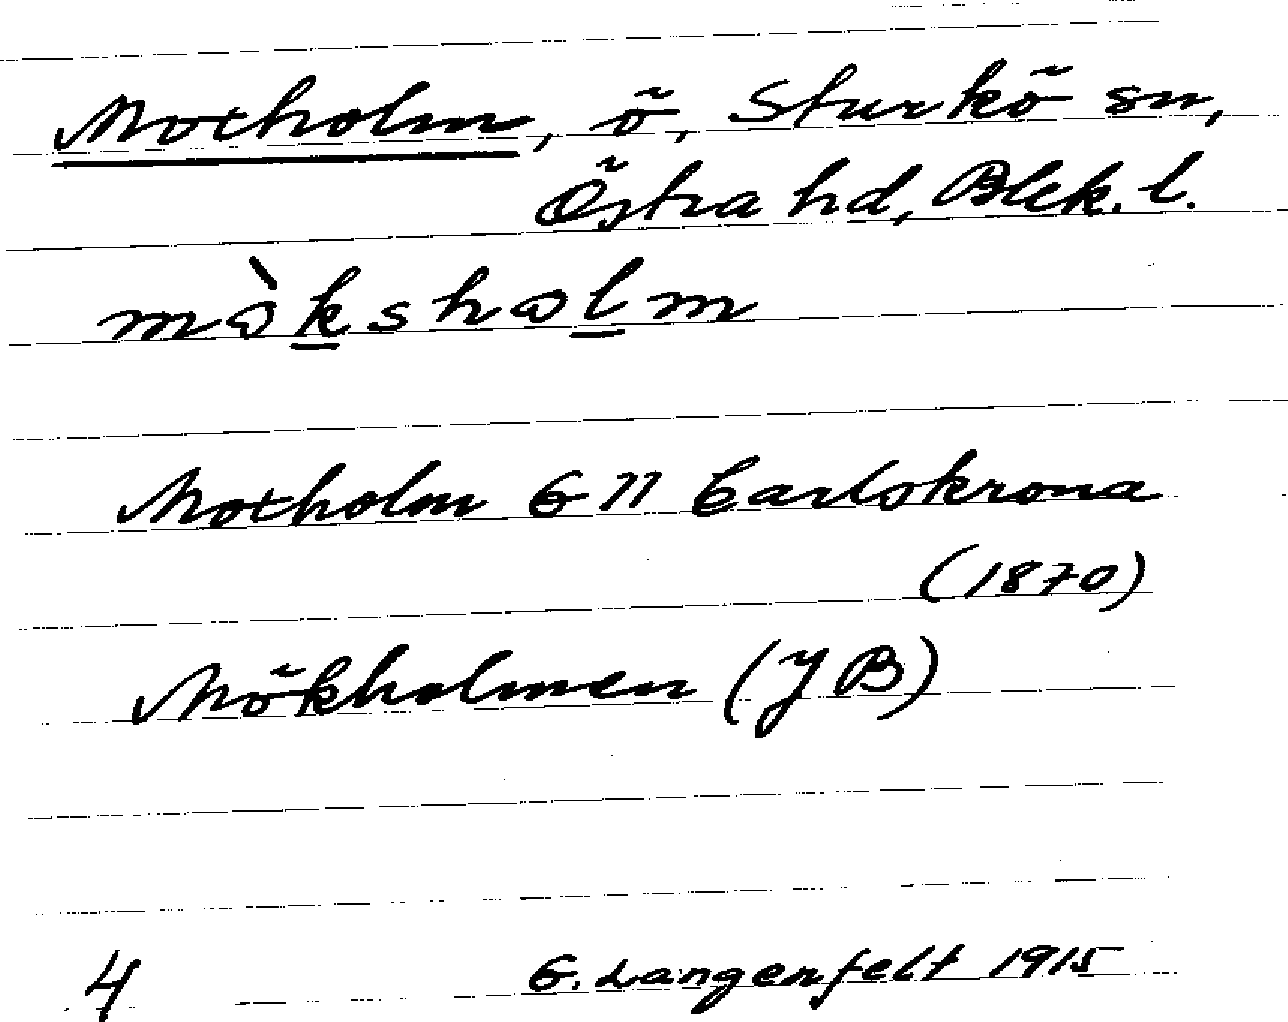 Moxholm, ö, Sturkö sn,
Östra hd, Blek. l.
mòksholm
Moxholm G11 Carlskrona
(1870)
Mökholmen (JB)
4 G. Langenfelt 1915